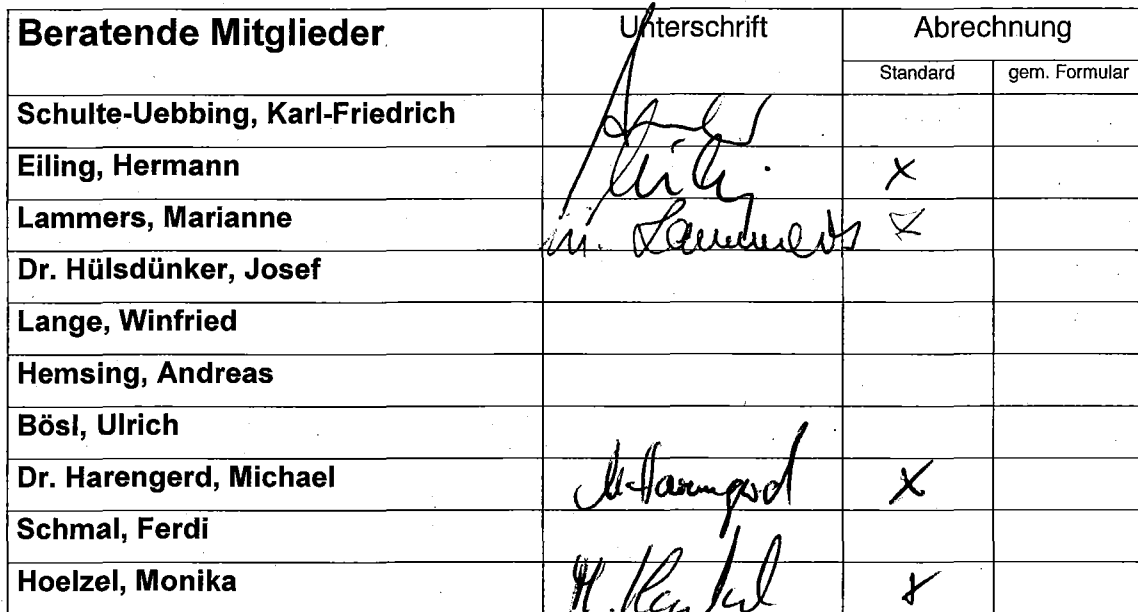 Beratende Mitglieder Unterschrift Abrechnung
Standard gem. Formular
Schulte-Uebbing, Karl-Friedrich
Eiling, Hermann x
Lammers, Marianne M. Lammers x
Dr. Hülsdünker, Josef
Lange, Winfried
Hemsing, Andreas
Bösl, Ulrich
Dr. Harengerd, Michael M. Harengerd x
Schmal, Ferdi
Hoelzel, Monika x